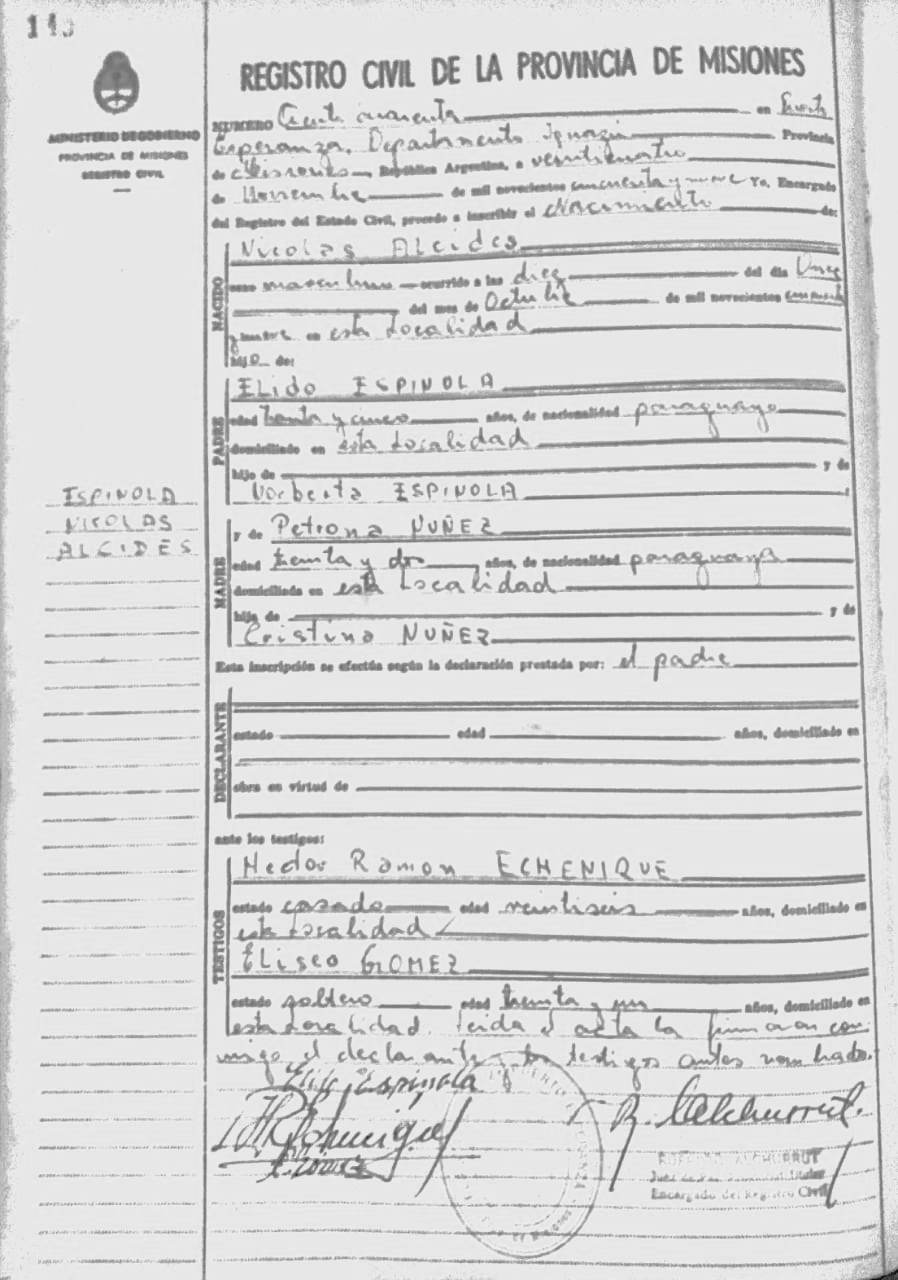 MINISTERIO DE GOBIERNO
PROVINCIA DE MISIONES
REGISTRO CIVIL
ESPINOLA
NICOLAS
ALCIDES
REGISTRO CIVIL DE LA PROVINCIA DE MISIONES
NUMERO Ciento cuarenta en Puerto
Esperanza, Departamento Iguazú Provincia
de Misiones República Argentina, a veinticuatro
de Noviembre de mil novecientos cincuenta y nueve Yo, Encargado
del Registro del Estado Civil, procedo a inscribir el Nacimiento de:
NACIDO
Nicolas Alcides
sexo masculino ocurrido a las diez del día Once
del mes de Octubre de mil novecientos cincuenta
y nueve en esta Localidad
hijo de:
PADRE
ELido ESPINOLA
edad treinta y cinco años, de nacionalidad paraguayo
domiciliado en esta Localidad
hijo de y de
Norberta ESPINOLA
MADRE
y de Petrona NUÑEZ
edad treinta y dos años, de nacionalidad paraguaya
domiciliada en esta Localidad
hija de y de
Cristina NUÑEZ
Esta inscripción se efectúa según la declaración prestada por: el padre
DECLARANTE
estado edad años, domiciliado en
obra en virtud de
ante los testigos:
TESTIGOS
Hector Ramon ECHENIQUE
estado casado edad veintiseis años, domiciliado en
esta Localidad
Eliseo GOMEZ
estado soltero edad treinta y un años, domiciliado en
esta Localidad. Leida el acta la firmaron con
migo el declarante y los testigos antes nombrados.
Espinola
Juez de Paz Titular
Encargado del Registro Civil